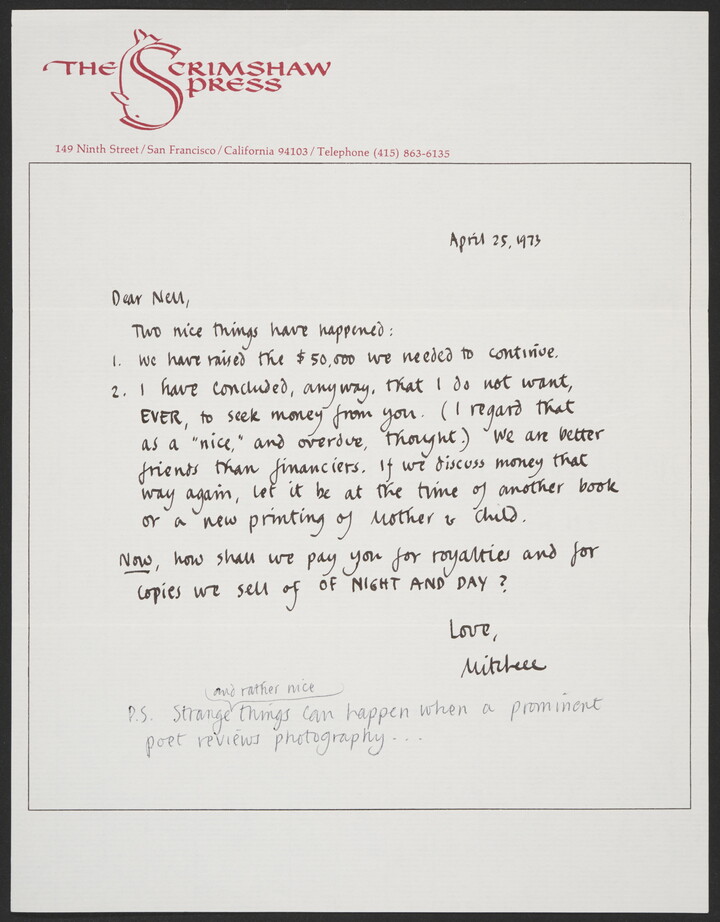 THE SCRIMSHAW
PRESS
149 Ninth Street / San Francisco / California 94103 / Telephone (415) 863-6135
April 25, 1973
Dear Nell,
Two nice things have happened:
1. We have raised the $50,000 we needed to continue.
2. I have concluded, anyway, that I do not want,
EVER, to seek money from you. (I regard that
as a "nice," and overdue, thought.) We are better
friends than financiers. If we discuss money that
way again, let it be at the time of another book
or a new printing of Mother & Child.
Now, how shall we pay you for royalties and for
copies we sell of OF NIGHT AND DAY?
Love,
Mitchell
(and rather nice)
P.S. Strange things can happen when a prominent
poet reviews photography...